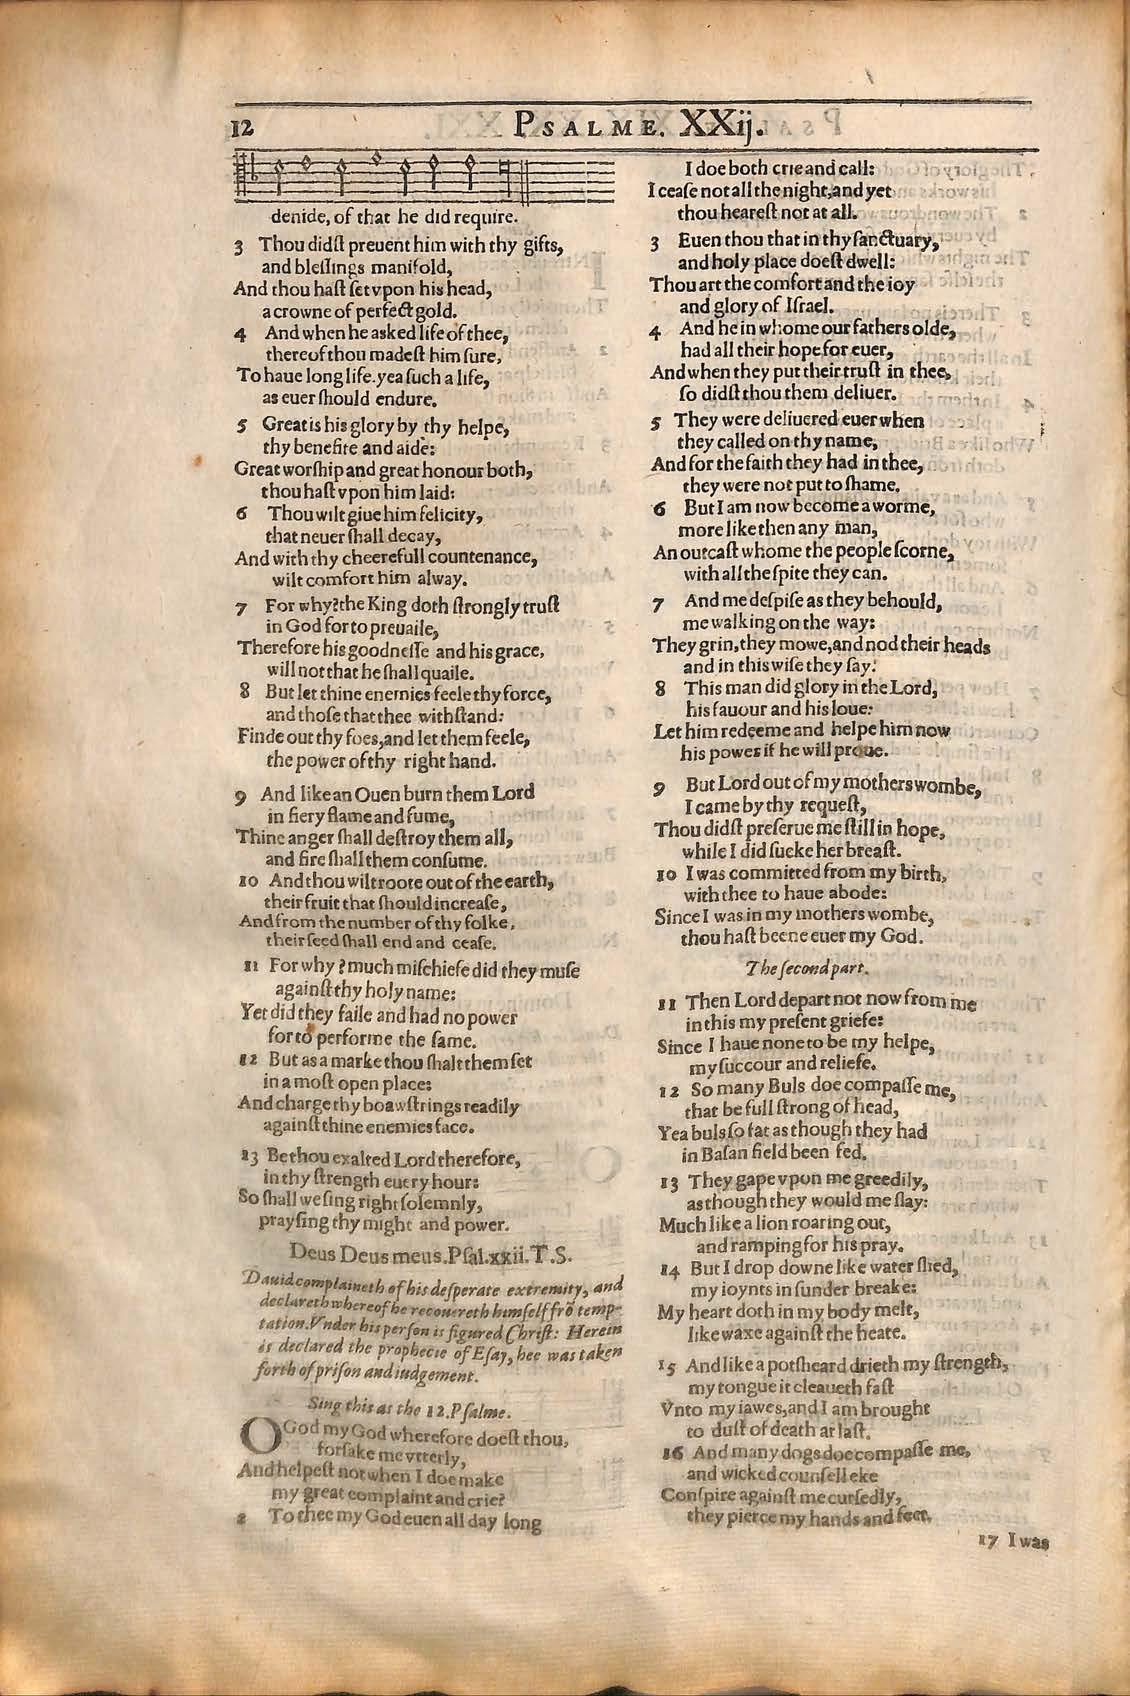 12
PSALME. XXij.
denide, of that he did require.
3 Thou didſt preuent him with thy gifts,
and bleſſings manifold,
And thou haſt ſet vpon his head,
a crowne of perfect gold.
4 And when he asked life of thee,
thereof thou madeſt him ſure,
To haue long life. yea ſuch a life,
as euer ſhould endure.
5 Great is his glory by thy helpe,
thy benefite and aide:
Great worſhip and great honour both,
thou haſt vpon him laid:
6 Thou wilt giue him felicity,
that neuer ſhall decay,
And with thy cheerefull countenance,
wilt comfort him alway.
7 For why? the King doth ſtrongly truſt
in God for to preuaile,
Therefore his goodneſſe and his grace,
will not that he ſhall quaile.
8 But let thine enemies feele thy force,
and thoſe that thee withſtand:
Finde out thy foes, and let them feele,
the power of thy right hand.
9 And like an Ouen burn them Lord
in fiery flame and fume,
Thine anger ſhall deſtroy them all,
and fire ſhall them conſume.
10 And thou wilt roote out of the earth,
their fruit that ſhould increaſe,
And from the number of thy folke,
their ſeed ſhall end and ceaſe.
11 For why? much miſchiefe did they muſe
againſt thy holy name:
Yet did they faile and had no power
for to performe the ſame.
12 But as a marke thou ſhalt them ſet
in a moſt open place:
And charge thy boawſtrings readily
againſt thine enemies face.
13 Be thou exalted Lord therefore,
in thy ſtrength euery hour:
So ſhall we ſing right ſolemnly,
prayſing thy might and power.
Deus Deus meus. Pſal. xxii. T. S.
Dauid complaineth of his deſperate extremity, and
declareth whereof he recouereth himſelf frō temp-
tation. Vnder his perſon is figured Chriſt: Herein
is declared the prophecie of Eſay, hee was taken
forth of priſon and iudgement.
Sing this as the 12. Pſalme.
O God my God wherefore doeſt thou,
forſake me vtterly,
And helpeſt not when I doe make
my great complaint and crie?
2 To thee my God euen all day long
I doe both crie and call:
I ceaſe not all the night, and yet
thou heareſt not at all.
3 Euen thou that in thy ſanctuary,
and holy place doeſt dwell:
Thou art the comfort and the ioy
and glory of Iſrael.
4 And he in whome our fathers olde,
had all their hope for euer,
And when they put their truſt in thee,
ſo didſt thou them deliuer.
5 They were deliuered euer when
they called on thy name,
And for the faith they had in thee,
they were not put to ſhame.
6 But I am now become a worme,
more like then any man,
An outcaſt whome the people ſcorne,
with all the ſpite they can.
7 And me deſpiſe as they behould,
me walking on the way:
They grin, they mowe, and nod their heads
and in this wiſe they ſay:
8 This man did glory in the Lord,
his fauour and his loue:
Let him redeeme and helpe him now
his power if he will proue.
9 But Lord out of my mothers wombe,
I came by thy requeſt,
Thou didſt preſerue me ſtill in hope,
while I did ſucke her breaſt.
10 I was committed from my birth,
with thee to haue abode:
Since I was in my mothers wombe,
thou haſt beene euer my God.
The ſecond part.
11 Then Lord depart not now from me
in this my preſent griefe:
Since I haue none to be my helpe,
my ſuccour and reliefe.
12 So many Buls doe compaſſe me,
that be full ſtrong of head,
Yea buls ſo fat as though they had
in Baſan field been fed.
13 They gape vpon me greedily,
as though they would me ſlay:
Much like a lion roaring out,
and ramping for his pray.
14 But I drop downe like water ſhed,
my ioynts in ſunder breake:
My heart doth in my body melt,
like waxe againſt the heate.
15 And like a potſheard drieth my ſtrength,
my tongue it cleaueth faſt
Vnto my iawes, and I am brought
to duſt of death at laſt.
16 And many dogs doe compaſſe me,
and wicked counſell eke
Conſpire againſt me curſedly,
they pierce my hands and feet.
17 I was